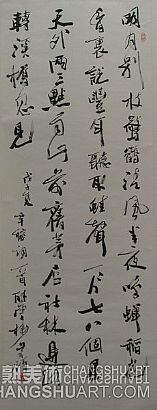 明月别枝惊鹊清风半夜鸣蝉稻花
香里说丰年听取蛙声一片七八个星
天外两三点雨山前旧茅店社林边路
转溪桥忽见
戊子夏 辛稼词一首
熟美术 CHANGSHUART
CHANGSHUART